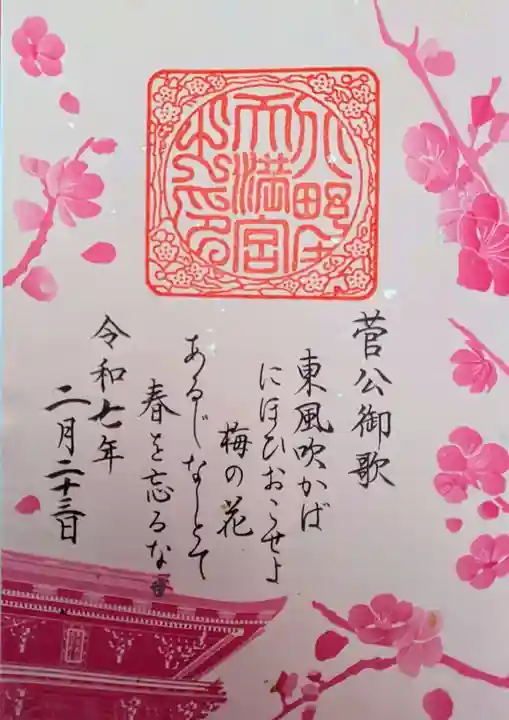 北野天満宮之印
菅公御歌
東風吹かば
にほひおこせよ
梅の花
あるじなしとて
春を忘るな
令和七年
二月二十三日